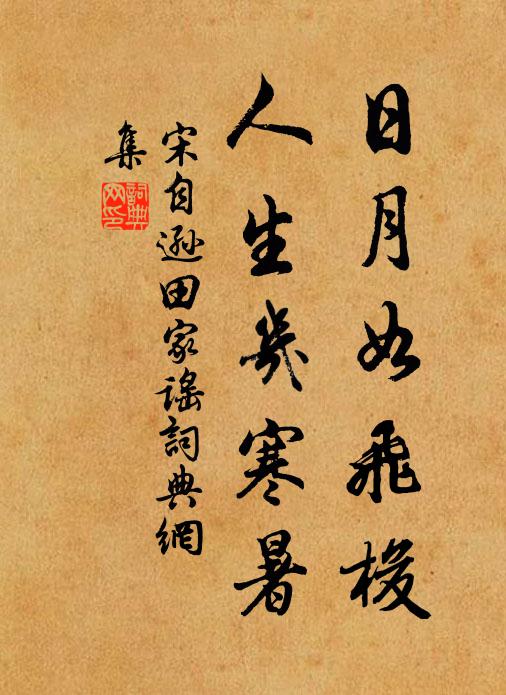 日月如飛梭
人生幾寒暑
宋自遜田家謠詞典網
集
詞典
网印